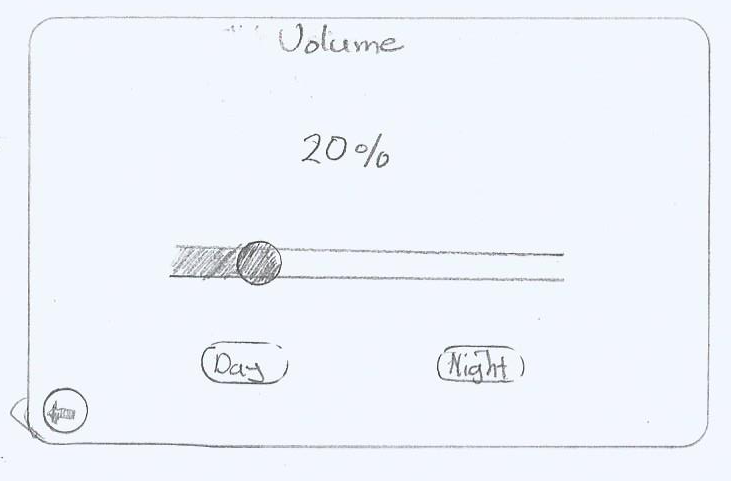 Volume
20%
Day Night